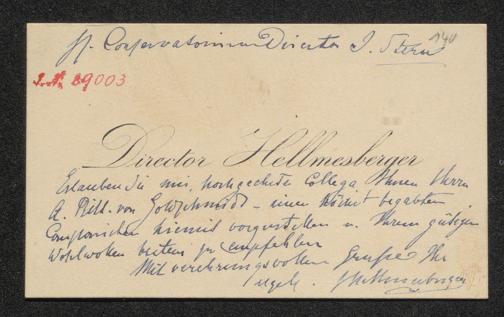 H. Conservatorium Director J. Stern
140
I. N. 89003
Director Hellmesberger
Erlauben Sie mir, hochgeehrter Collega, Ihnen Herrn
A. Ritt. von Goldschmidt – einen höchst begabten
Componisten hiemit vorzustellen u. Ihrem gütigen
Wohlwollen bestens zu empfehlen
Mit verehrungsvollem Gruße Ihr
ergeb. Hellmesberger